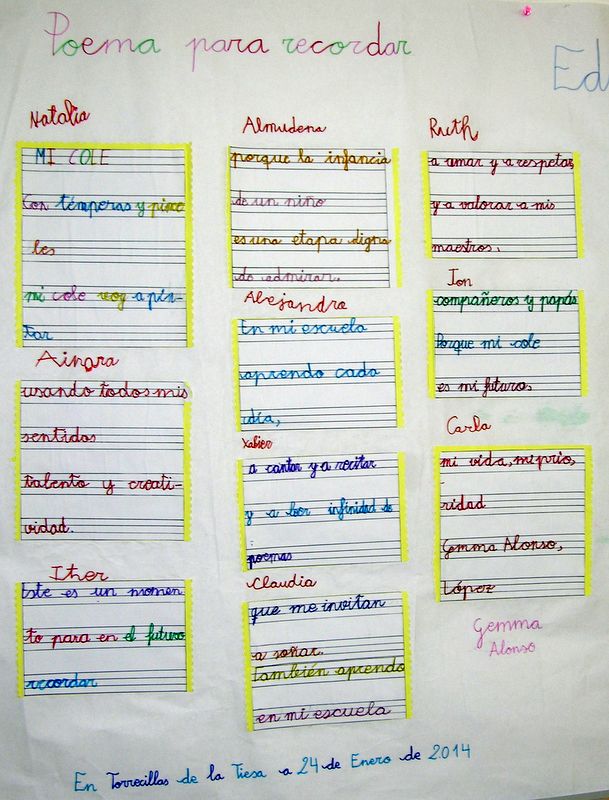 Poema para recordar
Ed
Natalia
MI COLE
Con témperas y pince
les
mi cole voy a pin-
tar
Ainara
usando todos mis
sentidos
talento y creati-
vidad.
Iher
Este es un momen
to para en el futuro
recordar
Almudena
porque la infancia
de un niño
es una etapa digna
de admirar.
Alejandra
En mi escuela
aprendo cada
día,
Xabier
a cantar y a recitar
y a leer infinidad de
poemas
Claudia
que me invitan
a soñar.
También aprendo
en mi escuela
Ruth
a amar y a respetar
y a valorar a mis
maestros,
Jon
compañeros y papás
Porque mi cole
es mi futuro,
Carla
mi vida, mi prio,
ridad
Gemma Alonso,
López
Gemma
Alonso
En Torrecillas de la Tiesa a 24 de Enero de 2014